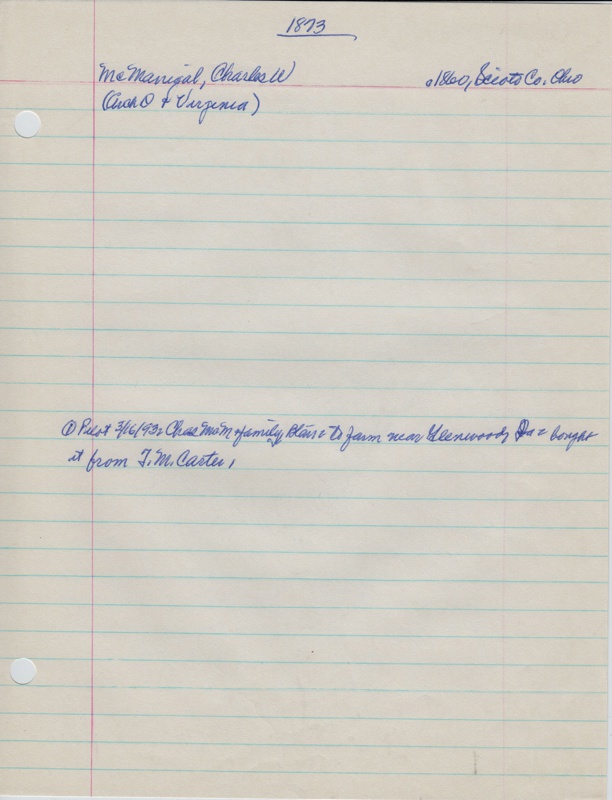 1873
McManigal, Charles W c1860, Scioto Co. Ohio
(Arch D + Virginia)
① Pilot 3/16/93: Chas McM + family, Blair = to farm near Glenwood, Ia = bought
it from T. M. Carter,